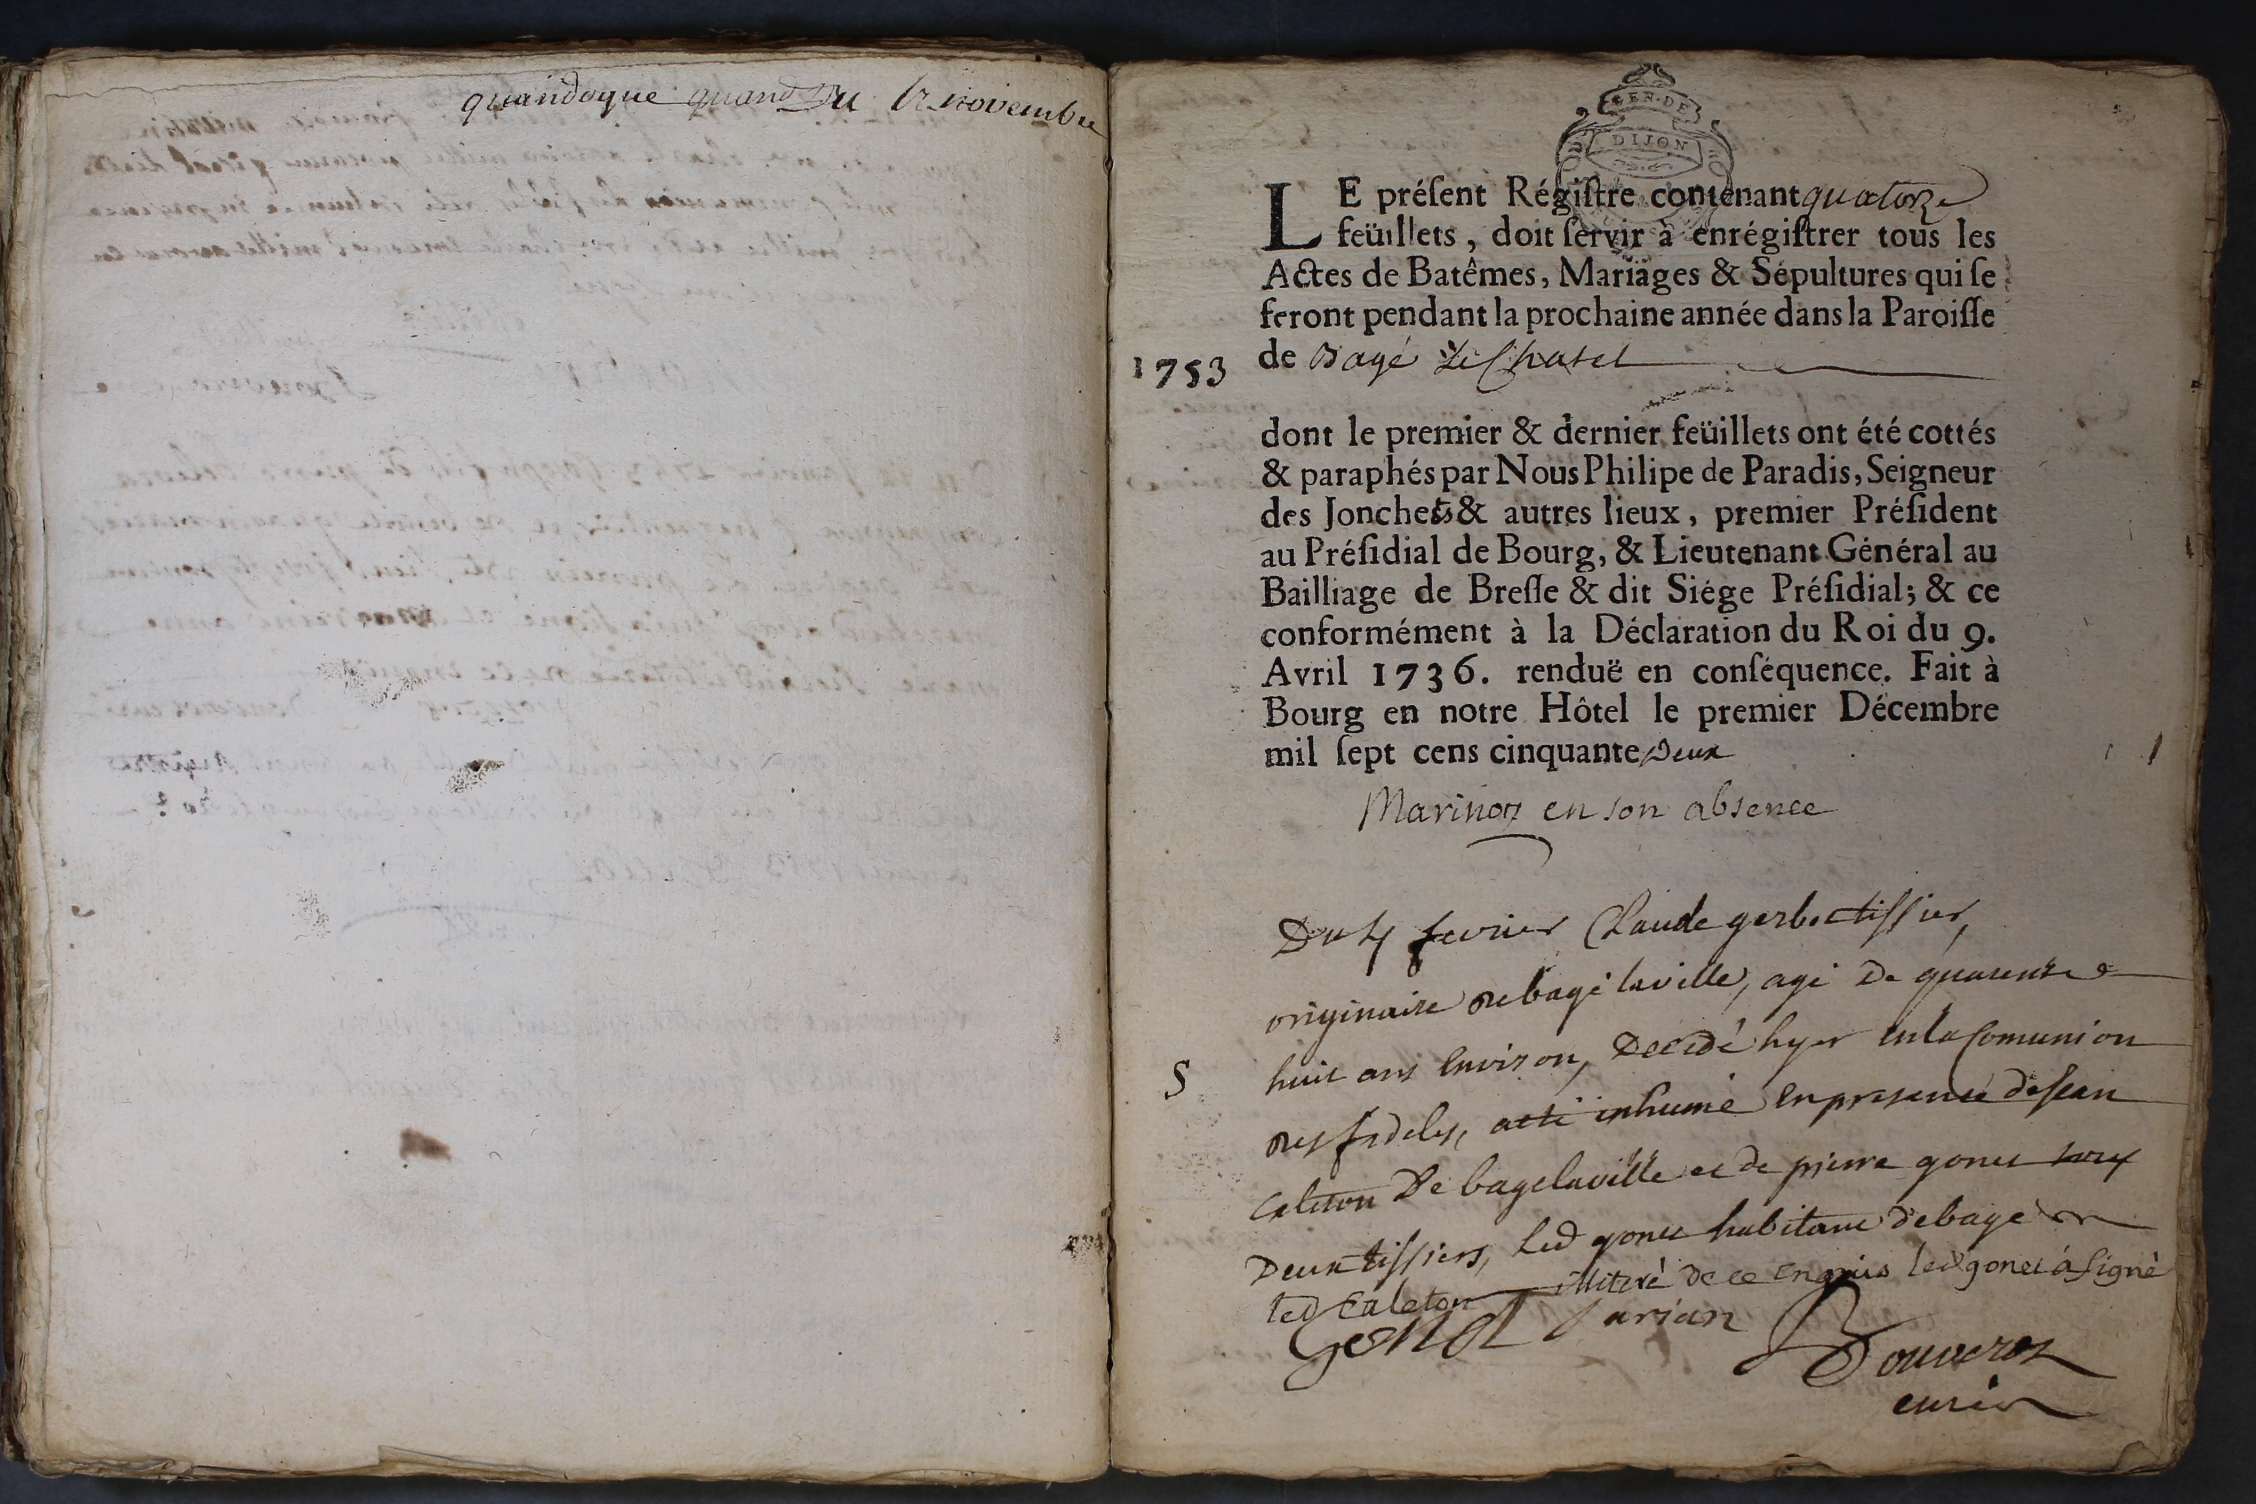 quandoque quand Du 12 novembre
GEN. DE
DIJON
LE préſent Régiſtre contenant quatorze
feüillets, doit ſervir à enrégiſtrer tous les
Actes de Batêmes, Mariages & Sépultures qui ſe
feront pendant la prochaine année dans la Paroiſſe
1753
de Bagé Le Chatel
dont le premier & dernier feüillets ont été cottés
& paraphés par Nous Philipe de Paradis, Seigneur
des Jonchets & autres lieux, premier Préſident
au Préſidial de Bourg, & Lieutenant Général au
Bailliage de Breſſe & dit Siége Préſidial; & ce
conformément à la Déclaration du Roi du 9.
Avril 1736. renduë en conſéquence. Fait à
Bourg en notre Hôtel le premier Décembre
mil ſept cens cinquante Deux
1
Marinon en son absence
Du 4 fevrier Claude gerbet tissier,
originaire de bagé laville, agé De quarente
huit ans Environ, Decedé hyer en la Comunion
S
des fideles, a eté inhumé En presence de Jean
Caleton De bagelaville et de pierre gonet tous
Deux tissiers, led gonet habitant de bagé
led Caleton illiteré de ce enquis led gonet à signé
GoNOt Parian Bouveron
curé